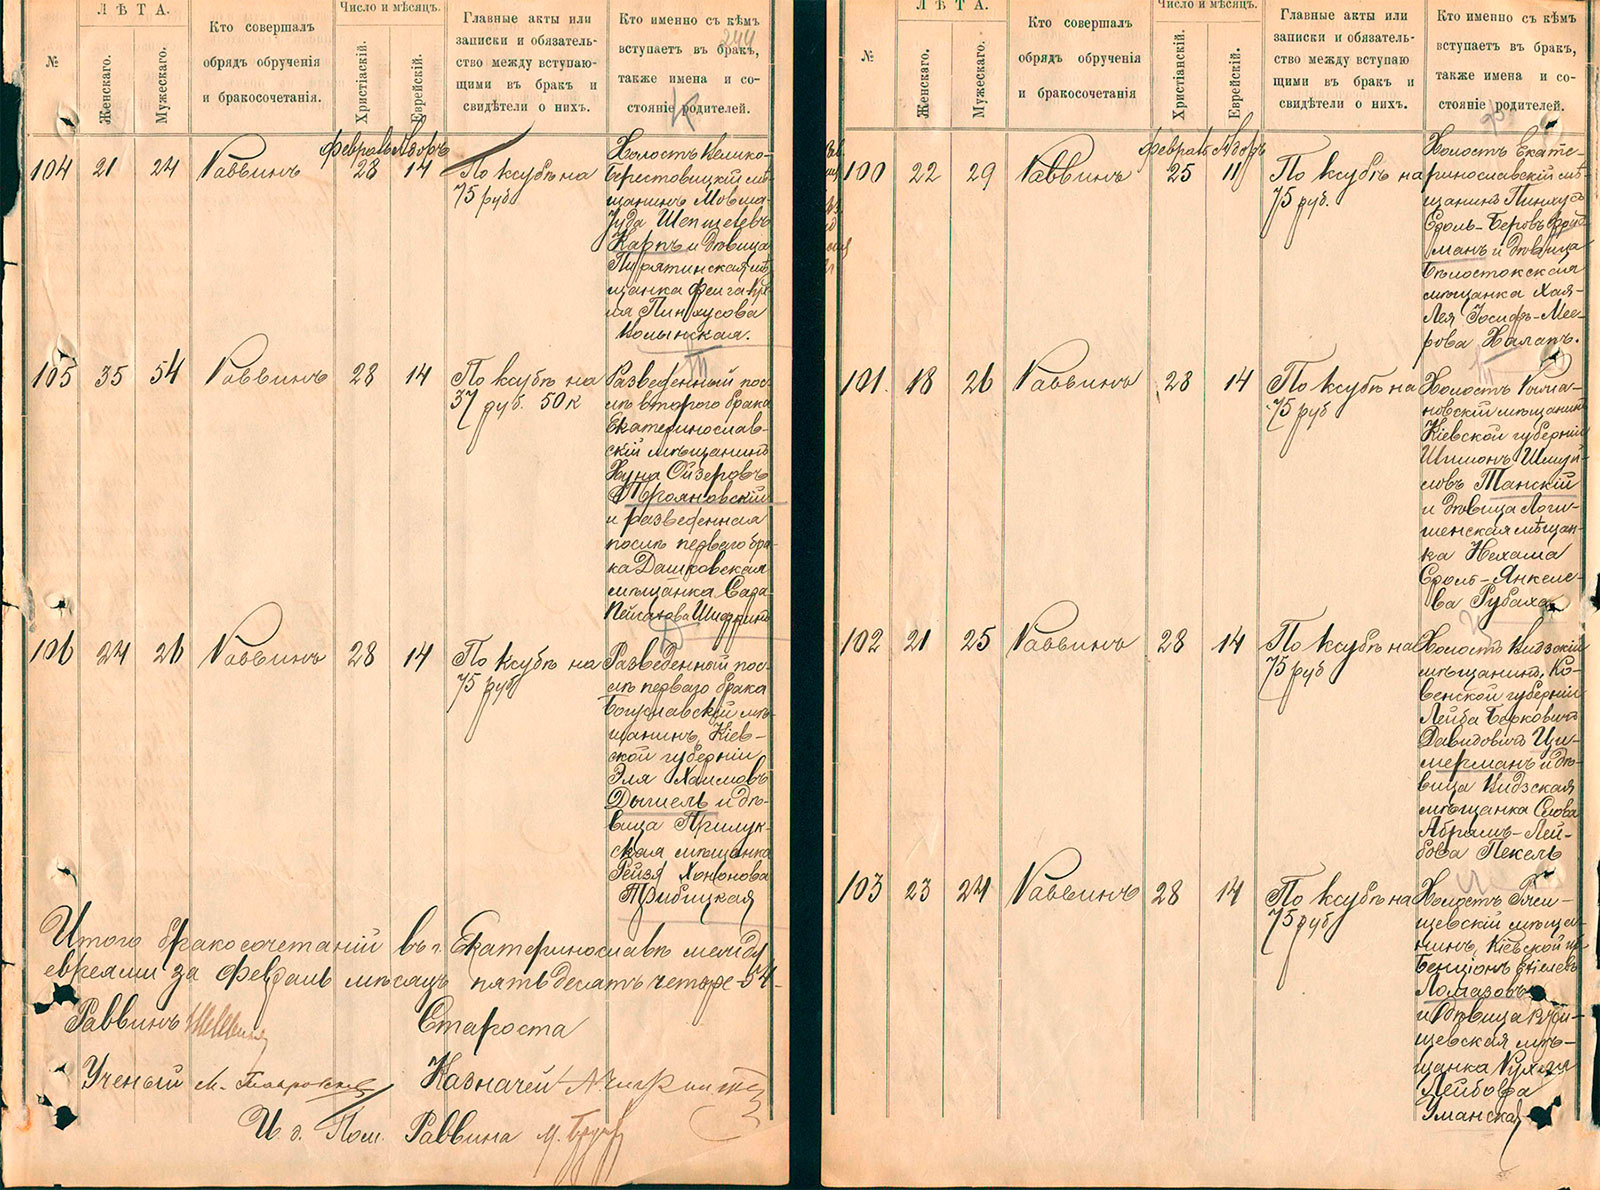 ЛѢТА.
Число и мѣсяцъ.
№
Женскаго.
Мужескаго.
Кто совершалъ
обрядъ обрученія
и бракосочетанія.
Христіаскій.
Еврейскій.
Главные акты или
записки и обязатель-
ство между вступаю-
щими въ бракъ и
свидѣтели о нихъ.
Кто именно съ кѣмъ
вступаетъ въ бракъ,
также имена и со-
стояніе родителей.
244
Февраль Адоръ
104 21 24 Раввинъ 28 14 По ксубѣ на
75 руб.
Холостъ Велико-
берестовицкій мѣ-
щанинъ Мовша-
Іуда Шепшелевъ
Карпъ и дѣвица
Пирятинская мѣ-
щанка Фейга
Пинхусова
Волынская.
105 35 54 Раввинъ 28 14 По ксубѣ на
37 руб. 50 к
Разведенный пос-
лѣ второго брака
Екатеринослав-
скій мѣщанинъ
Хуна Ойзеровъ
и разведенная
послѣ перваго бра-
ка Дашковская
мѣщанка Сара
106 24 26 Раввинъ 28 14 По ксубѣ на
75 руб
Разведенный пос-
лѣ перваго брака
Богуславскій мѣ-
щанинъ, Кіев-
ской губерніи
Эля Хаимовъ
Дышель и дѣ-
вица Прилук-
ская мѣщанка
Рейзя Хононова
Трибицкая
Итого бракосочетаній въ г. Екатеринославѣ между
евреями за Февраль мѣсяцъ пятьдесятъ четыре-54-
Раввинъ
Староста
Ученый
Казначей
И д. Пом. Раввина
ЛѢТА.
Число и мѣсяцъ.
№
Женскаго.
Мужескаго.
Кто совершалъ
обрядъ обрученія
и бракосочетанія
Христіанскій.
Еврейскій.
Главные акты или
записки и обязатель-
ство между вступаю
щими въ бракъ и
свидѣтели о нихъ.
Кто именно съ кѣмъ
вступаетъ въ бракъ,
также имена и со-
стояніе родителей.
Февраль Адоръ
100 22 29 Раввинъ 25 11 По ксубѣ на
75 руб.
Холостъ Екате-
ринославскій мѣ-
щанинъ Пинхусъ
Сроль-Беровъ
манъ и дѣвица
Бѣлостокская
мѣщанка Хая-
Лея Іосифъ-Мее-
рова Халапъ.
101. 18 26 Раввинъ 28 14 По ксубѣ на
75 руб
Холостъ Рохма-
новскій мѣщанинъ
Кіевской губерніи
Шимонъ Шмуй-
ловъ Танскій
и дѣвица Логи-
шенская мѣщан-
ка Нехама
Сроль-Янкеле-
ва Рубаха
102 21 25 Раввинъ 28 14 По ксубѣ на
75 руб
Холостъ Видзскій
мѣщанинъ, Ко-
венской губерніи
Лейба Берковичъ
Давидовичъ Ци-
мерманъ и дѣ-
вица Видзская
мѣщанка Слова
Абрамъ-Лей-
бова Пекель
103 23 24 Раввинъ 28 14 По ксубѣ на
75 руб
Холостъ Ржи-
щевскій мѣща-
нинъ, Кіевской гу-
Бенціонъ
Ломазовъ
и дѣвица Ржи-
щевская мѣ-
щанка Рухля
Лейбова
Уманская